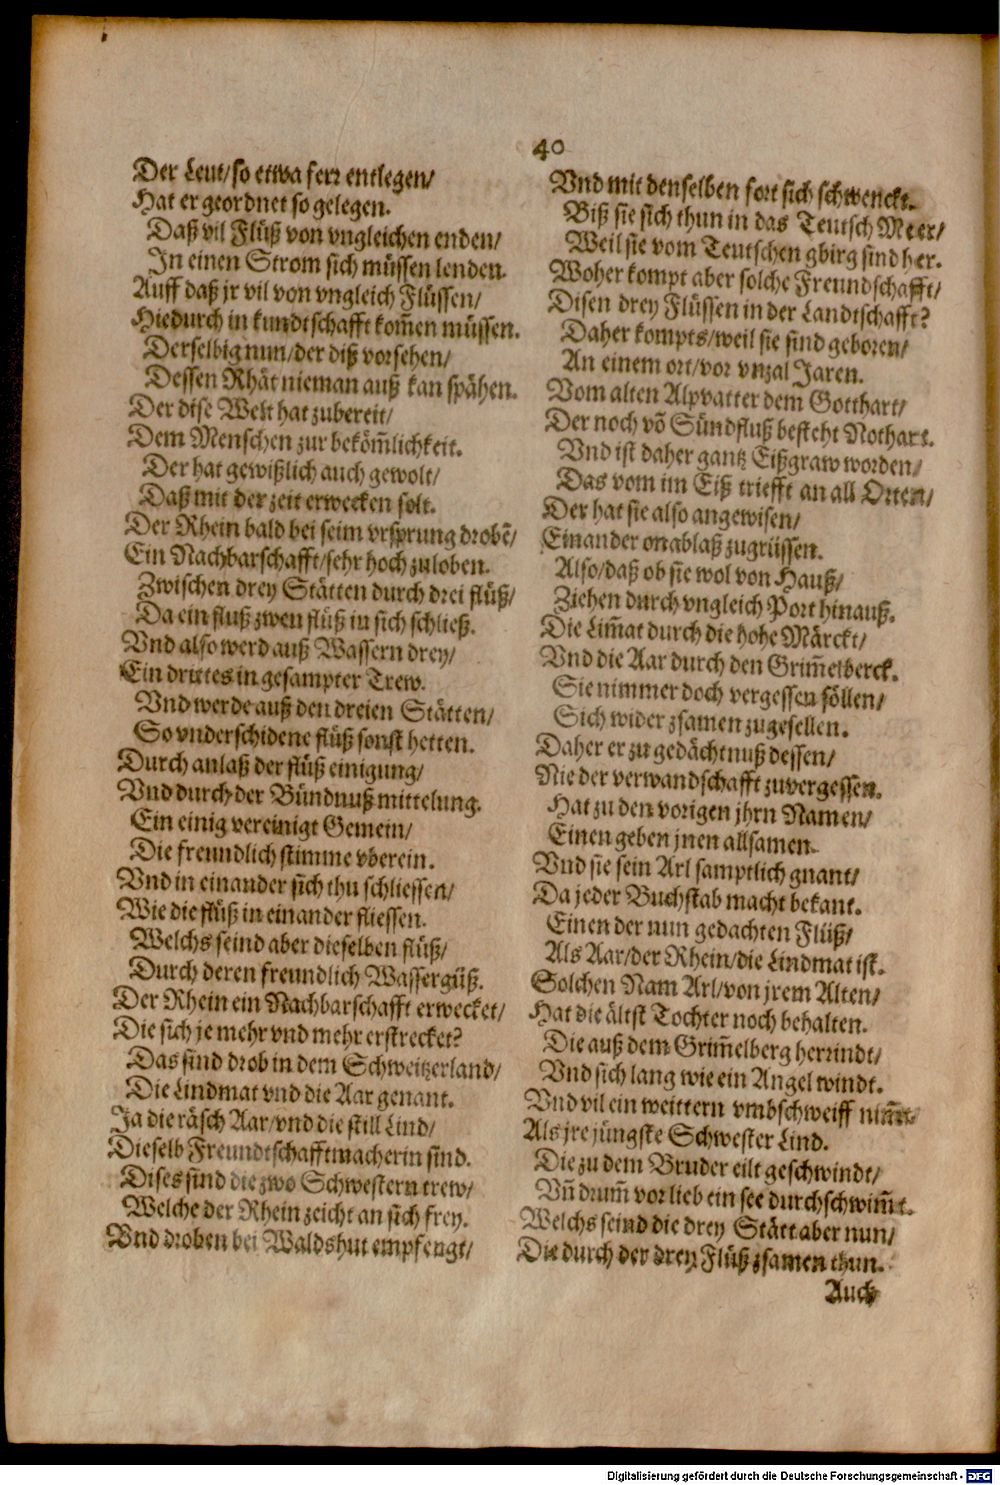 40
Der Leut/so etwa ferr entlegen/
Hat er geordnet so gelegen.
Daß vil Flüß von vngleichen enden/
In einen Strom sich müssen lenden.
Auff daß jr vil von vngleich Flüssen/
Hiedurch in kundtschafft kom̃en müssen.
Derselbig nun/der diß vorsehen/
Dessen Rhät nieman auß kan spähen.
Der dise Welt hat zubereit/
Dem Menschen zur beköm̃lichkeit.
Der hat gewißlich auch gewolt/
Daß mit der zeit erwecken solt.
Der Rhein bald bei seim vrsprung drobẽ/
Ein Nachbarschafft/sehr hoch zuloben.
Zwischen drey Stätten durch drei flüß/
Da ein fluß zwen flüß in sich schließ.
Vnd also werd auß Wassern drey/
Ein drittes in gesampter Trew.
Vnd werde auß den dreien Stätten/
So vnderschidene flüß sonst hetten.
Durch anlaß der flüß einigung/
Vnd durch der Bündnuß mittelung.
Ein einig vereinigt Gemein/
Die freundlich stimme vberein.
Vnd in einander sich thu schliessen/
Wie die flüß in einander fliessen.
Welchs seind aber dieselben flüß/
Durch deren freundlich Wassergüß.
Der Rhein ein Nachbarschafft erwecket/
Die sich je mehr vnd mehr erstrecket?
Das sind drob in dem Schweitzerland/
Die Lindmat vnd die Aar genant.
Ja die räsch Aar/vnd die still Lind/
Dieselb Freundtschafftmacherin sind.
Dises sind die zwo Schwestern trew/
Welche der Rhein zeicht an sich frey.
Vnd droben bei Waldshut empfengt/
Vnd mit denselben fort sich schwenckt.
Biß sie sich thun in das Teutsch Meer/
Weil sie vom Teutschen gbirg sind her.
Woher kompt aber solche Freundschafft/
Disen drey Flüssen in der Landtschafft?
Daher kompts/weil sie sind geboren/
An einem ort/vor vnzal Jaren.
Vom alten Alpvatter dem Gotthart/
Der noch võ Sündfluß besteht Nothart.
Vnd ist daher gantz Eißgraw worden/
Das vom im Eiß triefft an all Orten/
Der hat sie also angewisen/
Einander onablaß zugrüssen.
Also/daß ob sie wol von Hauß/
Ziehen durch vngleich Port hinauß.
Die Lim̃at durch die hohe Märckt/
Vnd die Aar durch den Grim̃elberck.
Sie nimmer doch vergessen söllen/
Sich wider zsamen zugesellen.
Daher er zu gedächtnuß dessen/
Nie der verwandschafft zuvergessen.
Hat zu den vorigen jhrn Namen/
Einen geben jnen allsamen.
Vnd sie sein Arl samptlich gnant/
Da jeder Buchstab macht bekant.
Einen der nun gedachten Flüß/
Als Aar/der Rhein/die Lindmat ist.
Solchen Nam Arl/von jrem Alten/
Hat die ältst Tochter noch behalten.
Die auß dem Grim̃elberg herrindt/
Vnd sich lang wie ein Angel windt.
Vnd vil ein weittern vmbschweiff nim̃t/
Als jre jüngste Schwester Lind.
Die zu dem Bruder eilt geschwindt/
Vñ drum̃ vor lieb ein see durchschwim̃t.
Welchs seind die drey Stätt aber nun/
Die durch der drey Flüß zsamen thun.
Auch
Digitalisierung gefördert durch die Deutsche Forschungsgemeinschaft - DFG